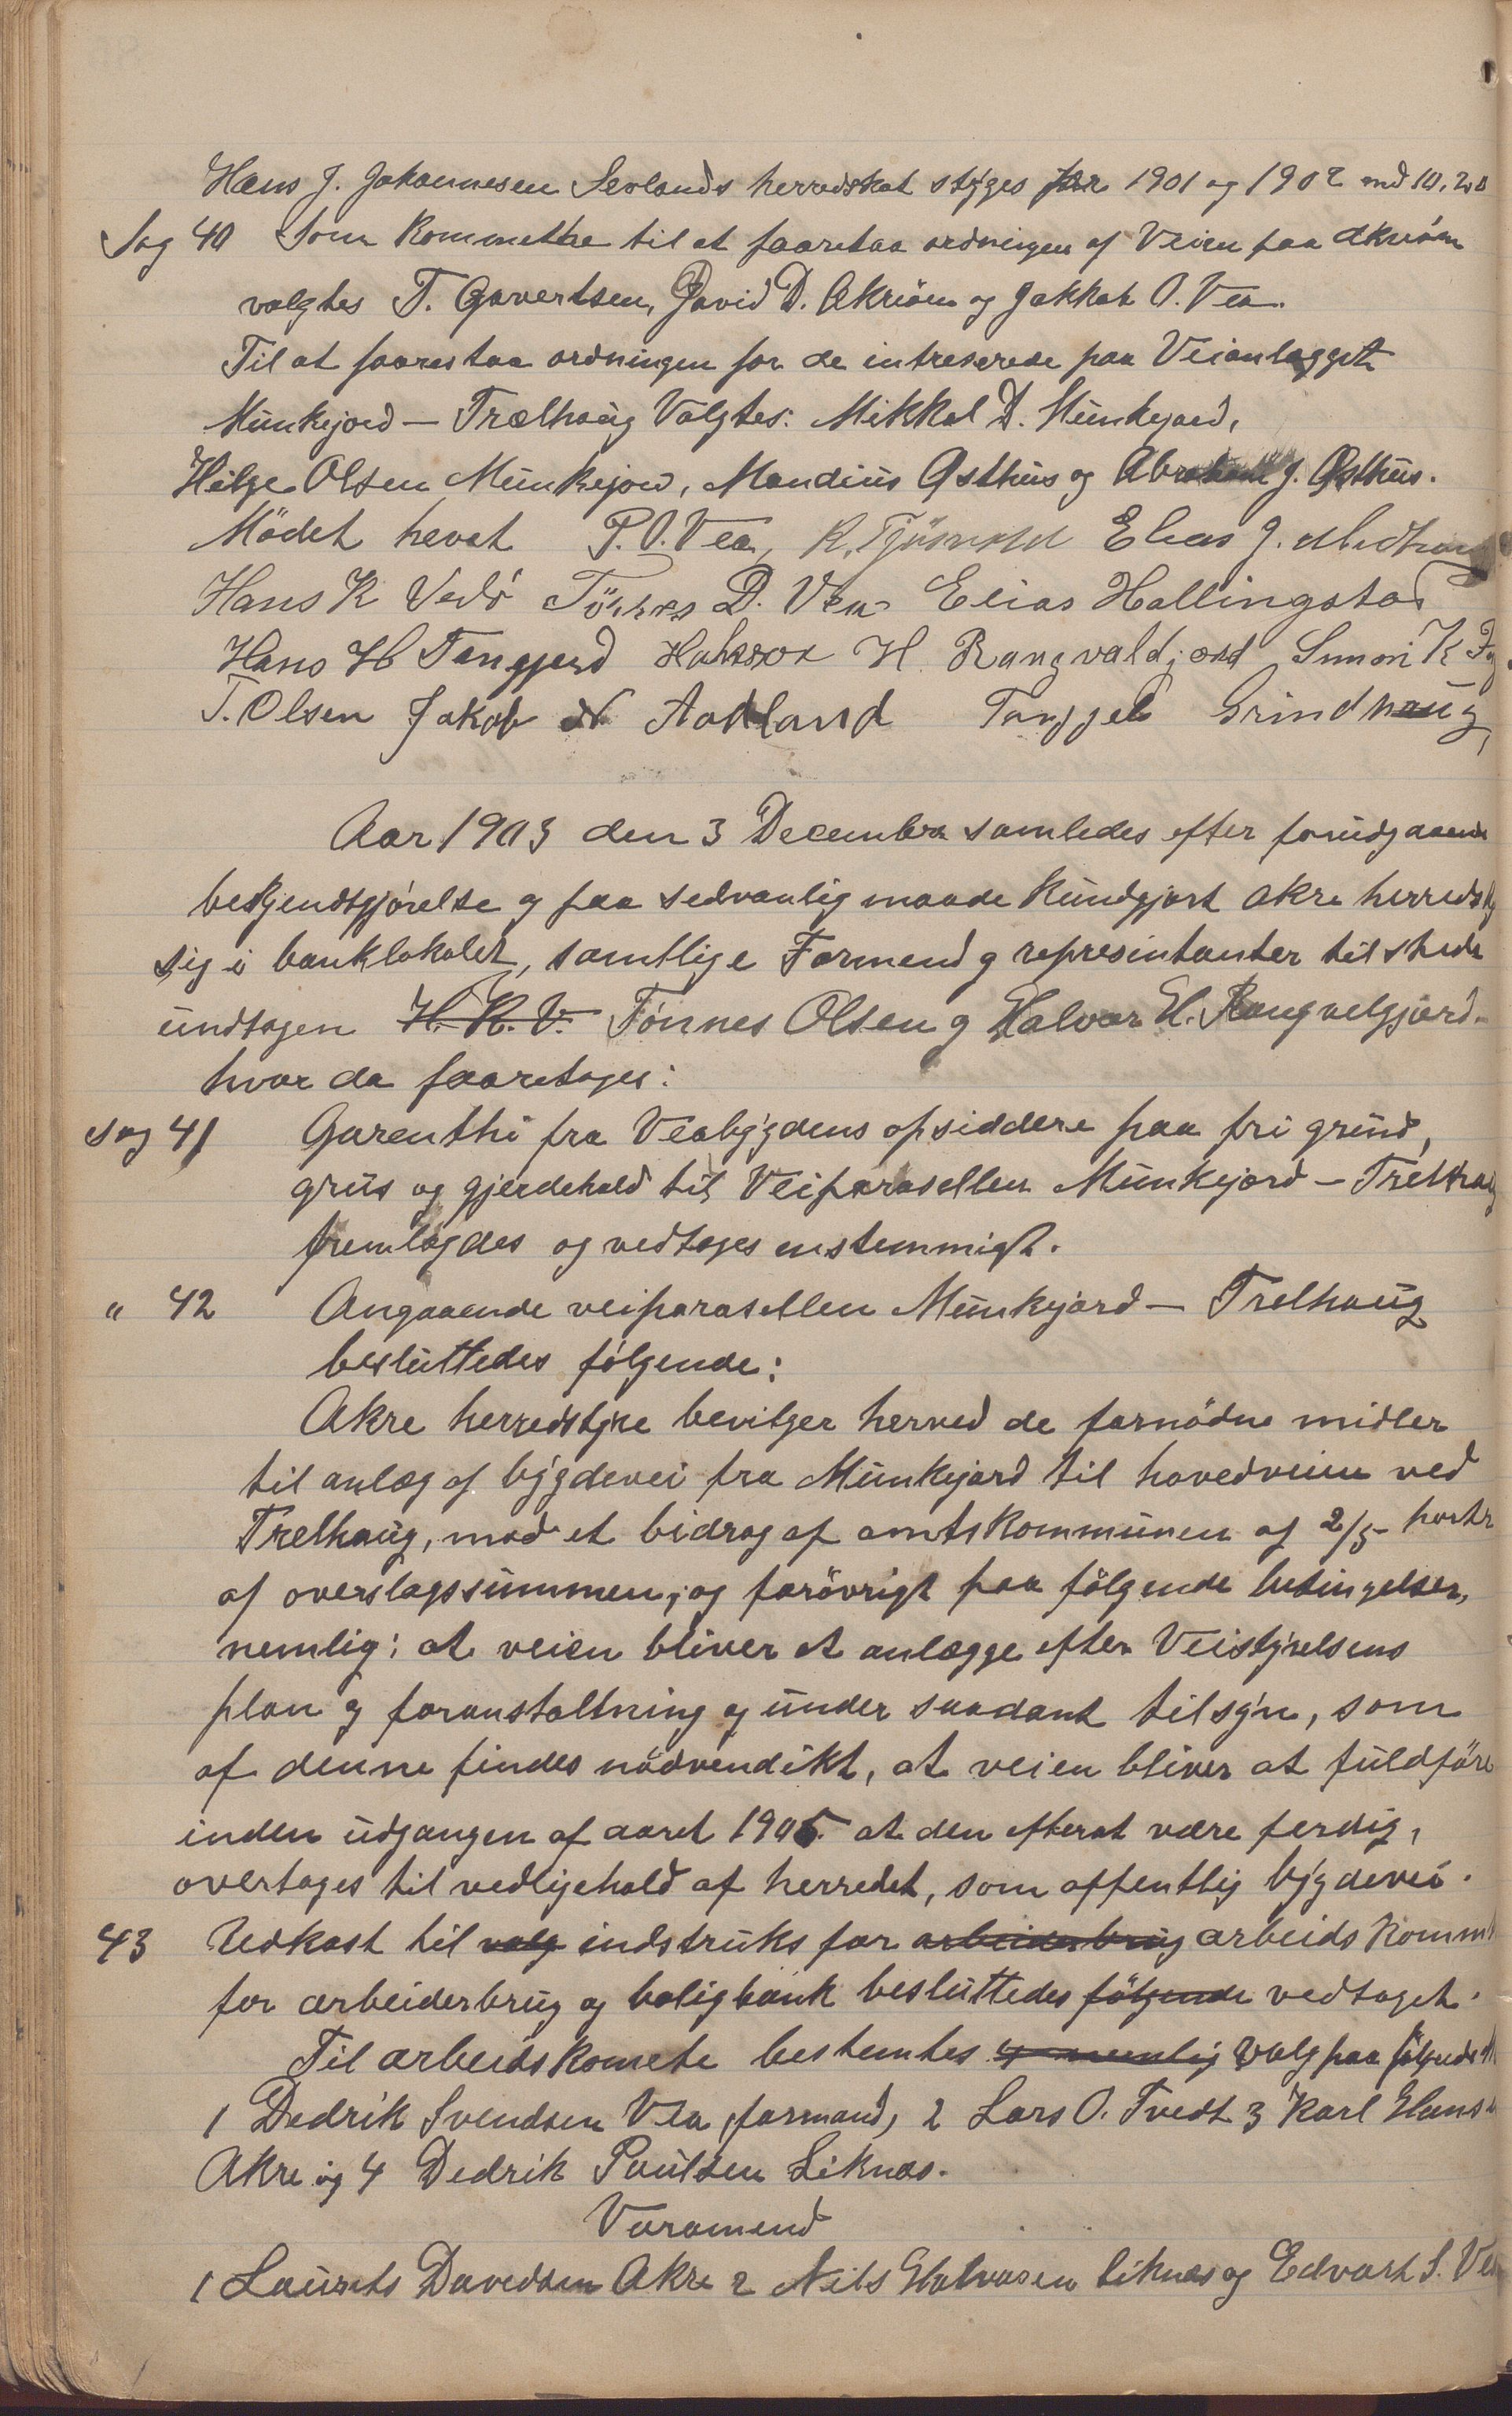 Hans J. Johannesen Sevlands herredskat stÿges for 1901 og 1902 med 10,20
Sag 40 Som Kommethe til at faaretaa ordningen af Veien paa Akriøen
valgtes T. Gavertsen, David D. Akriøen og Jakkob O. Vea.
Til at faarestaa ordningen for de intreserede paa Veianlægget
Munkejord – Trælhaug Valgtes: Mikkal D. Munkejord,
Hilge Olsen Munkejord, Mandius Østhus og Abraham J. Østhus.
Mödet hevet P.O. Vea, R. Elias J.
Hans K Vedö Tönnes D. Vea Elias Hallingstad
Hans H Tangjerd H Rangvaldjord Simon K
T. Olsen Jakob N Aadland Grindhaug
Aar 1903 den 3 December samledes efter forudgaaende
beskjendtgjørelse og paa sedvanlig maade Kundgjort Akre herredsty
sig i banklokalet, samtlige Formend og represintanter tilstede
undtagen H. K. V. Tönnes Olsen og Halvar H. Rangvelgjord.
hvor da faaretoges:
Sag 41 Garenthi fra Veabÿgdens opsiddere paa fri grund,
grus og gjerdehold til Veiparasellen Munkejord – Trelhaug
fremlagdes og vedtoges enstemmigt.
" 42 Angaaende veiparasellen Munkejord – Trelhaug
besluttedes følgende:
Akre herredstyre bevilger herved de fornödne midler
til anlæg af bÿgdevei fra Munkejord til hovedveien ved
Trelhaug, mod et bidrag af amtskommunen af 2/5 parter
af overslagssummen; og forövrigt paa fölgende betingelser,
nemlig: at veien bliver at anlægge efter Veistÿrelsens
plan og foranstaltning og under saadant tilsÿn, som
af denne findes nödvendikt, at veien bliver at fuldföre
inden udgangen af aaret 1905. at den efterat være ferdig,
overtages til vedligehold af herredet, som offentlig bÿgdevei.
43 Udkast til valg indstruks for arbeiderbrug arbeids Komm
for arbeiderbrug og boligbank besluttedes fölgende vedtaget.
Til arbeidskomete bestemtes og nemlig valg paa fölgende
1 Dedrik Svendsen Vea, formand, 2 Lars O. Tvedt 3 Karl Hans
Akre og 4 Dedrik Poulsen Liknes.
Varamend
1 Laurits Davedsen Akre 2 Nils Halvasen Liknes og Edvart S. Vea